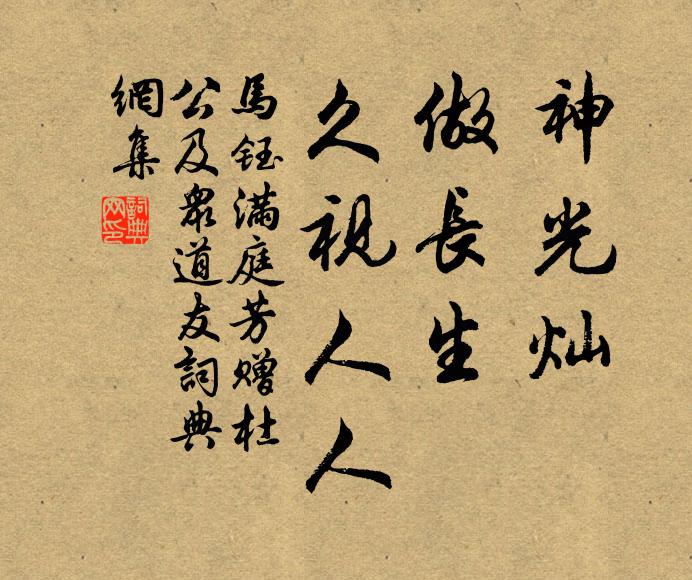 神光灿
做長生
久視人人
馬鈺滿庭芳赠杜
公及眾道友詞典
網集
詞典
网印